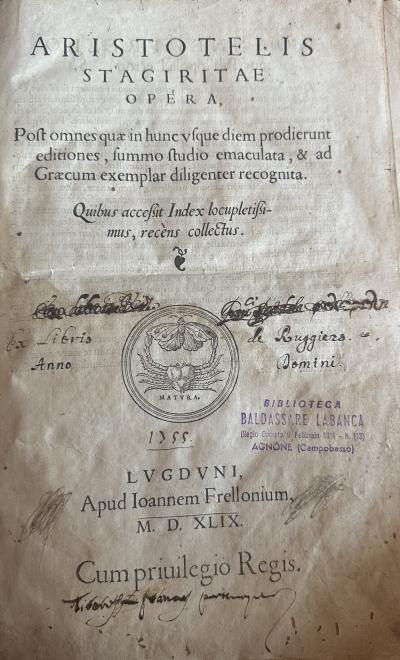 ARISTOTELIS
STAGIRITAE
OPERA,
Post omnes quæ in hunc vsque diem prodierunt
editiones, summo studio emaculata, & ad
Græcum exemplar diligenter recognita.
Quibus accessit Index locupletissi-
mus, recèns collectus.
ex Libris de Ruggiero
Anno Domini
MATVRA.
1755.
BIBLIOTECA
BALDASSARE LABANCA
AGNONE (Campobasso)
LVGDVNI,
Apud Ioannem Frellonium,
M. D. XLIX.
Cum priuilegio Regis.